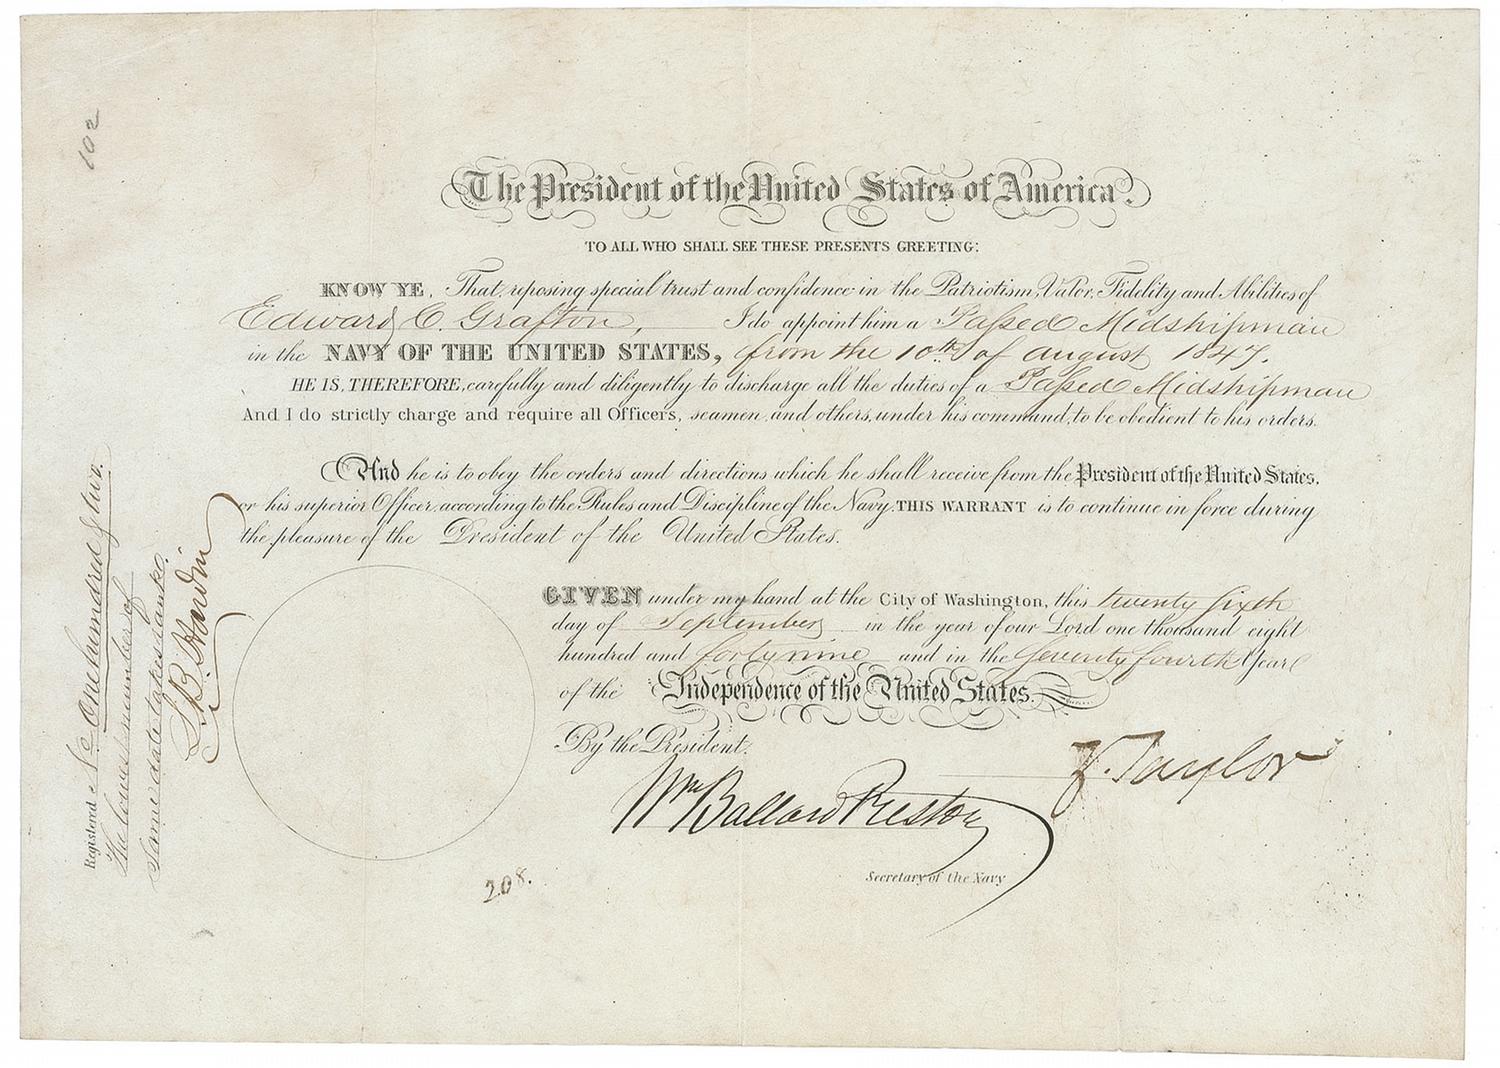 The President of the United States of America.
TO ALL WHO SHALL SEE THESE PRESENTS GREETING:
KNOW YE, That reposing special trust and confidence in the Patriotism, Valor, Fidelity and Abilities of
Edward C. Grafton, I do appoint him a Passed Midshipman
in the NAVY OF THE UNITED STATES, from the 10th of August 1847.
HE IS, THEREFORE, carefully and diligently to discharge all the duties of a Passed Midshipman
And I do strictly charge and require all Officers, seamen and others, under his command, to be obedient to his orders.
And he is to obey the orders and directions which he shall receive from the President of the United States,
or his superior Officer, according to the Rules and Discipline of the Navy. THIS WARRANT is to continue in force during
the pleasure of the President of the United States.
GIVEN under my hand at the City of Washington, this twenty sixth
day of September in the year of our Lord one thousand eight
hundred and forty nine and in the Seventy fourth Year
of the Independence of the United States.
By the President.
Z. Taylor
Wm Ballard Preston
Secretary of the Navy
208.
102
Registered No One hundred & two.
The lowest number of
same date takes rank.